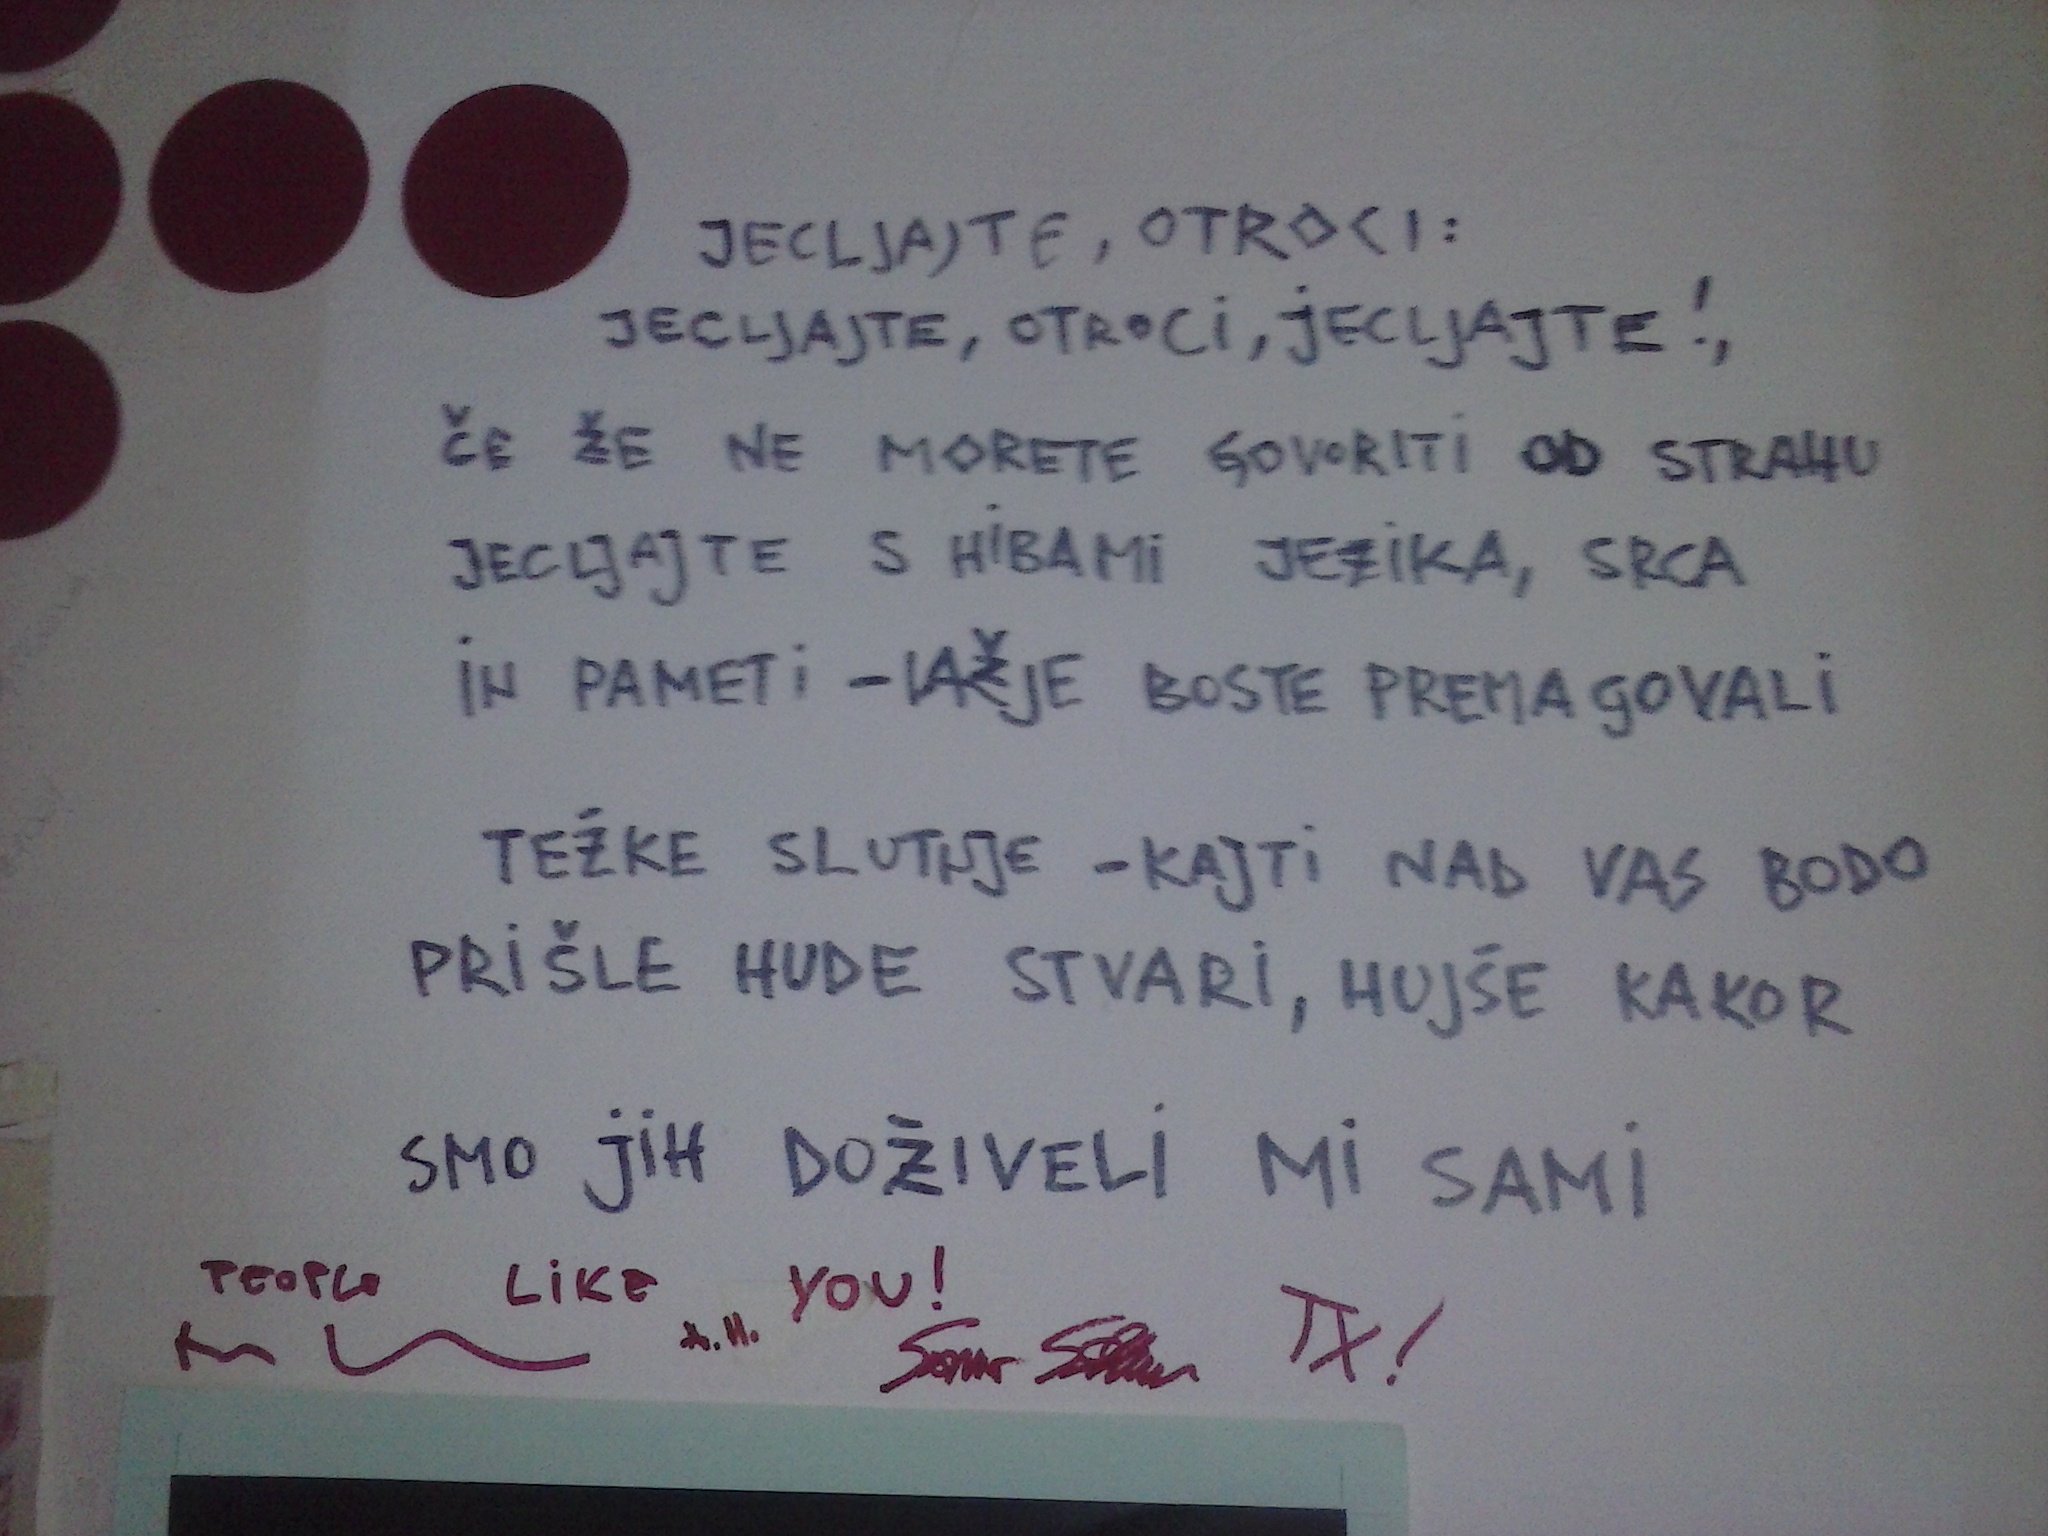 JECLJAJTE, OTROCI:
JECLJAJTE, OTROCI, JECLJAJTE!,
ČE ŽE NE MORETE GOVORITI OD STRAHU
JECLJAJTE S HIBAMI JEZIKA, SRCA
IN PAMETI – LAŽJE BOSTE PREMAGOVALI
TEŽKE SLUTNJE – KAJTI NAD VAS BODO
PRIŠLE HUDE STVARI, HUJŠE KAKOR
SMO JIH DOŽIVELI MI SAMI
PEOPLE LIKE YOU!
A.H. TX!